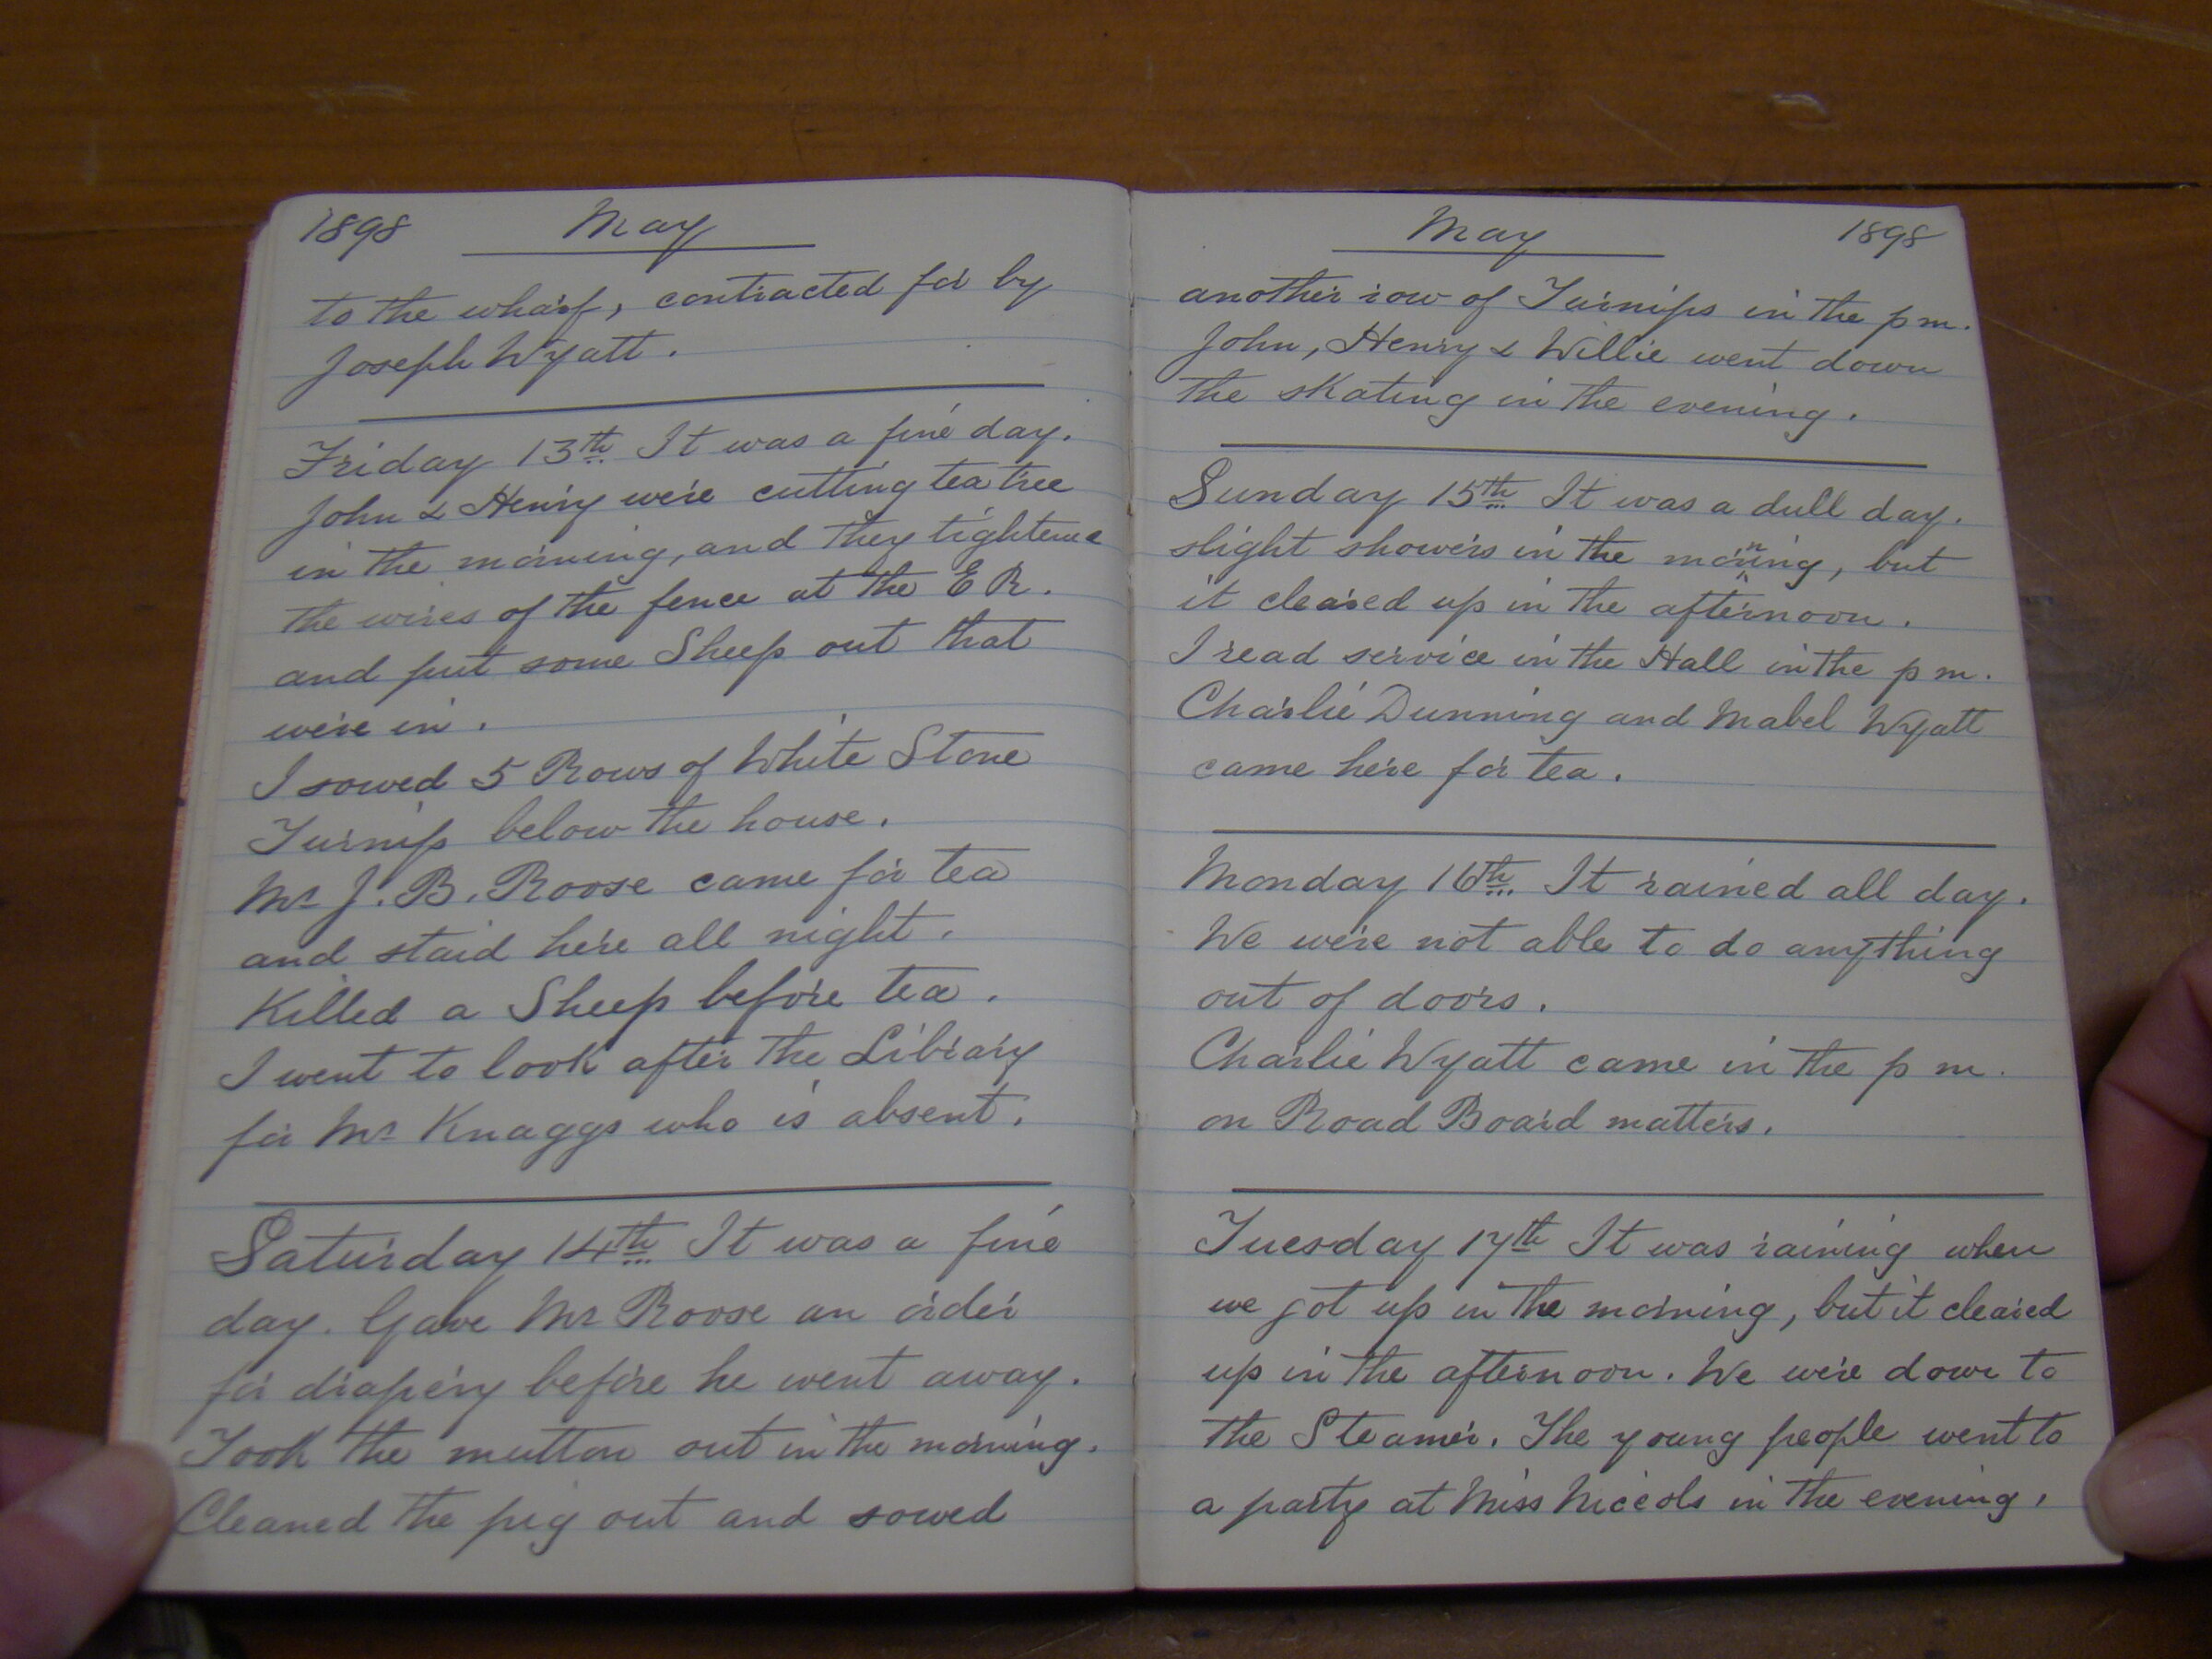 1898 May
to the wharf, contracted for by
Joseph Wyatt.
Friday 13th It was a fine day.
John & Henry were cutting tea tree
in the morning, and they tightened
the wires of the fence at the E R.
and put some Sheep out that
were in.
I sowed 5 Rows of White Stone
Turnip below the house.
Mr J. B. Roose came for tea
and staid here all night.
Killed a Sheep before tea.
I went to look after the Library
for Mr Knaggs who is absent.
Saturday 14th It was a fine
day. Gave Mr Roose an order
for drapery before he went away.
Took the mutton out in the morning.
Cleaned the pig out and sowed
May 1898
another row of Turnips in the p m.
John, Henry & Willie went down
the skating in the evening.
Sunday 15th It was a dull day.
slight showers in the morning, but
it cleared up in the afternoon.
I read service in the Hall in the p m.
Charlie Dunning and Mabel Wyatt
came here for tea.
Monday 16th It rained all day.
We were not able to do anything
out of doors.
Charlie Wyatt came in the p m.
on Road Board matters.
Tuesday 17th It was raining when
we got up in the morning, but it cleared
up in the afternoon. We were down to
the Steamer. The young people went to
a party at Miss Niccols in the evening.